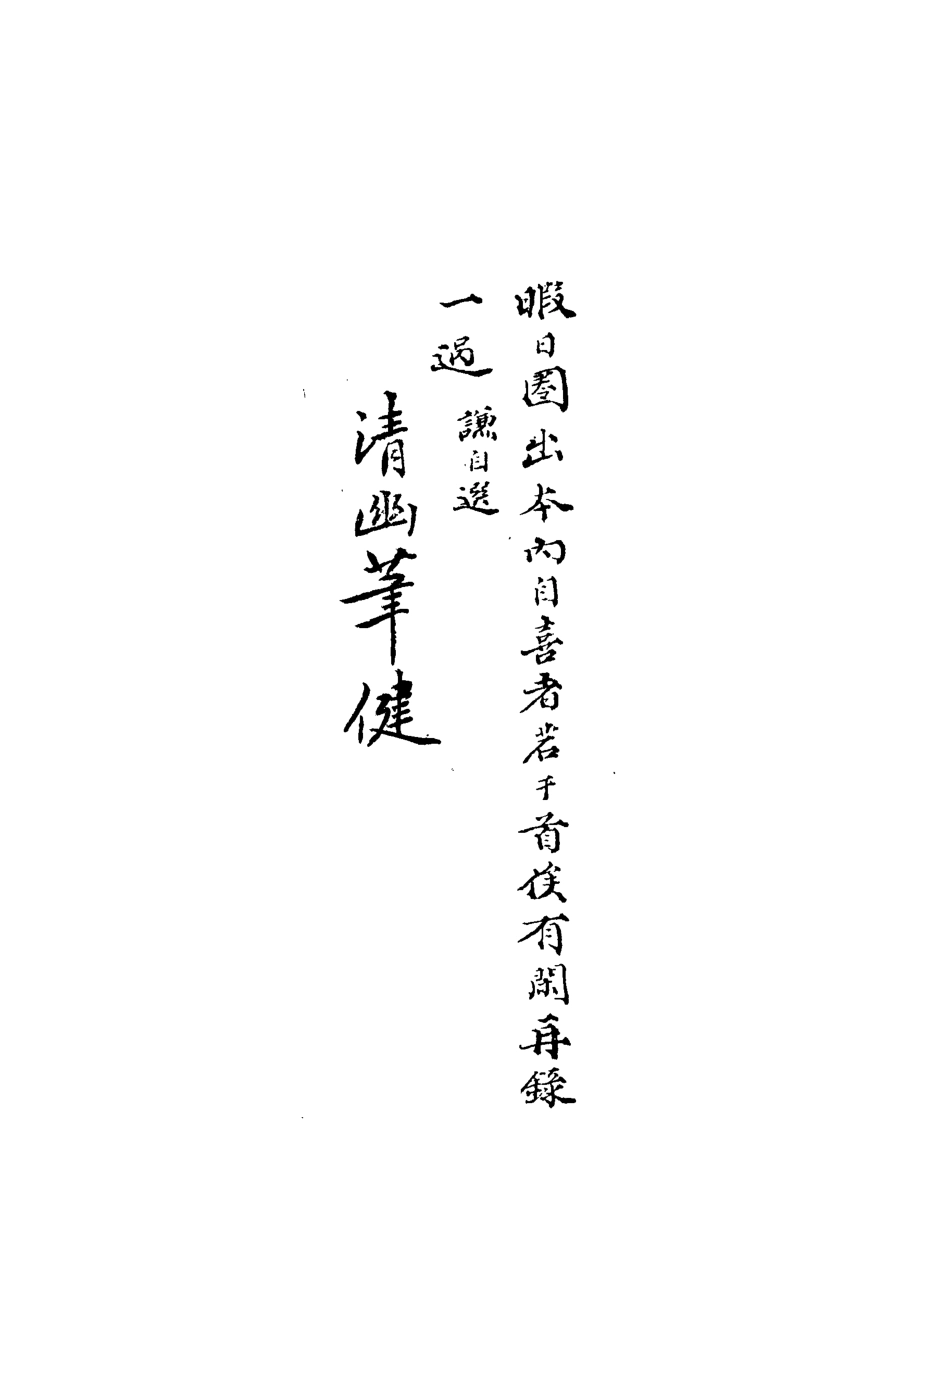 暇日圈出本內自喜者若干首俟有閑再錄
一過 謙自選
清幽筆健